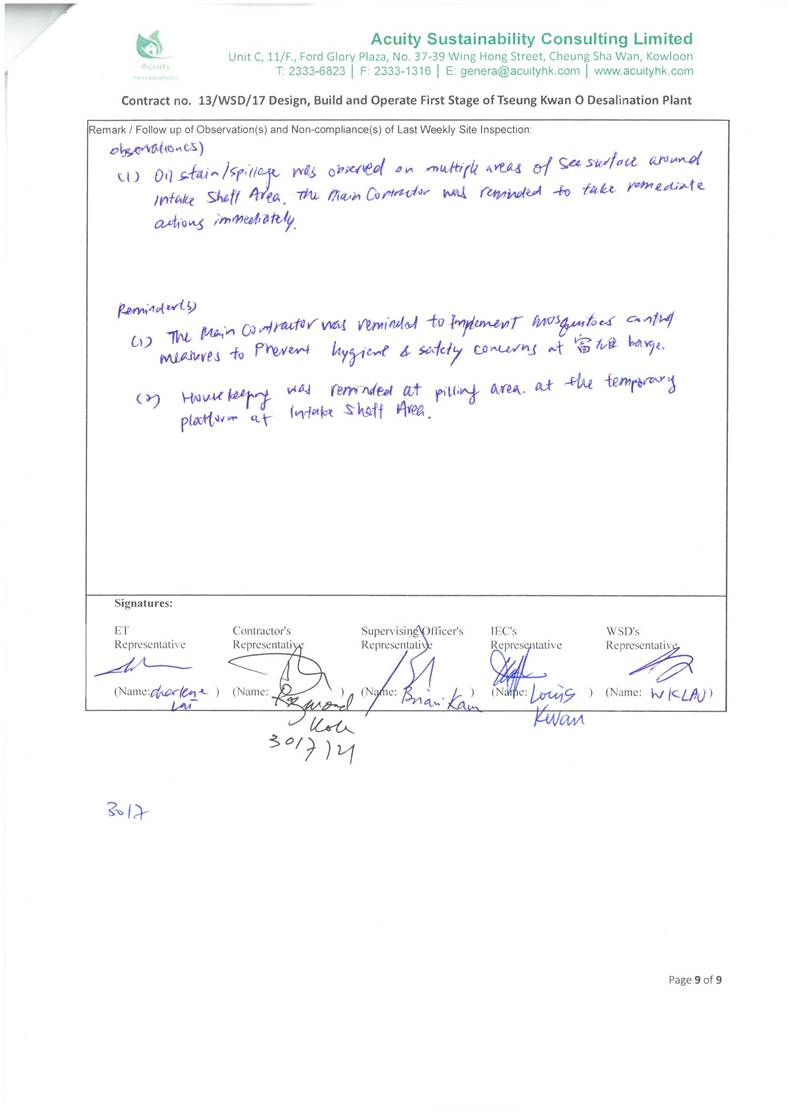 Acuity Sustainability Consulting Limited
Unit C, 11/F., Ford Glory Plaza, No. 37-39 Wing Hong Street, Cheung Sha Wan, Kowloon
T: 2333-6823 | F: 2333-1316 | E: genera@acuityhk.com | www.acuityhk.com
Acuity
Contract no. 13/WSD/17 Design, Build and Operate First Stage of Tseung Kwan O Desalination Plant
Remark / Follow up of Observation(s) and Non-compliance(s) of Last Weekly Site Inspection:
observation(s)
(1) Oil stain/spillage was observed on multiple areas of sea surface around
Intake Shaft Area. The Main Contractor was reminded to take remediate
actions immediately.
Reminder(s)
(1) The Main Contractor was reminded to implement mosquitoes control
measures to prevent hygiene & safety concerns at 富 barge.
(2) Housekeeping was reminded at pilling area. at the temporary
platform at Intake Shaft Area.
Signatures:
ET Contractor's Supervising Officer's IEC's WSD's
Representative Representative Representative Representative Representative
(Name: Charlene ) (Name: Raymond ) (Name: Brian Kam ) (Name: Louis ) (Name: W K LAU )
Lai Kwan
30/7/21
30/7
Page 9 of 9